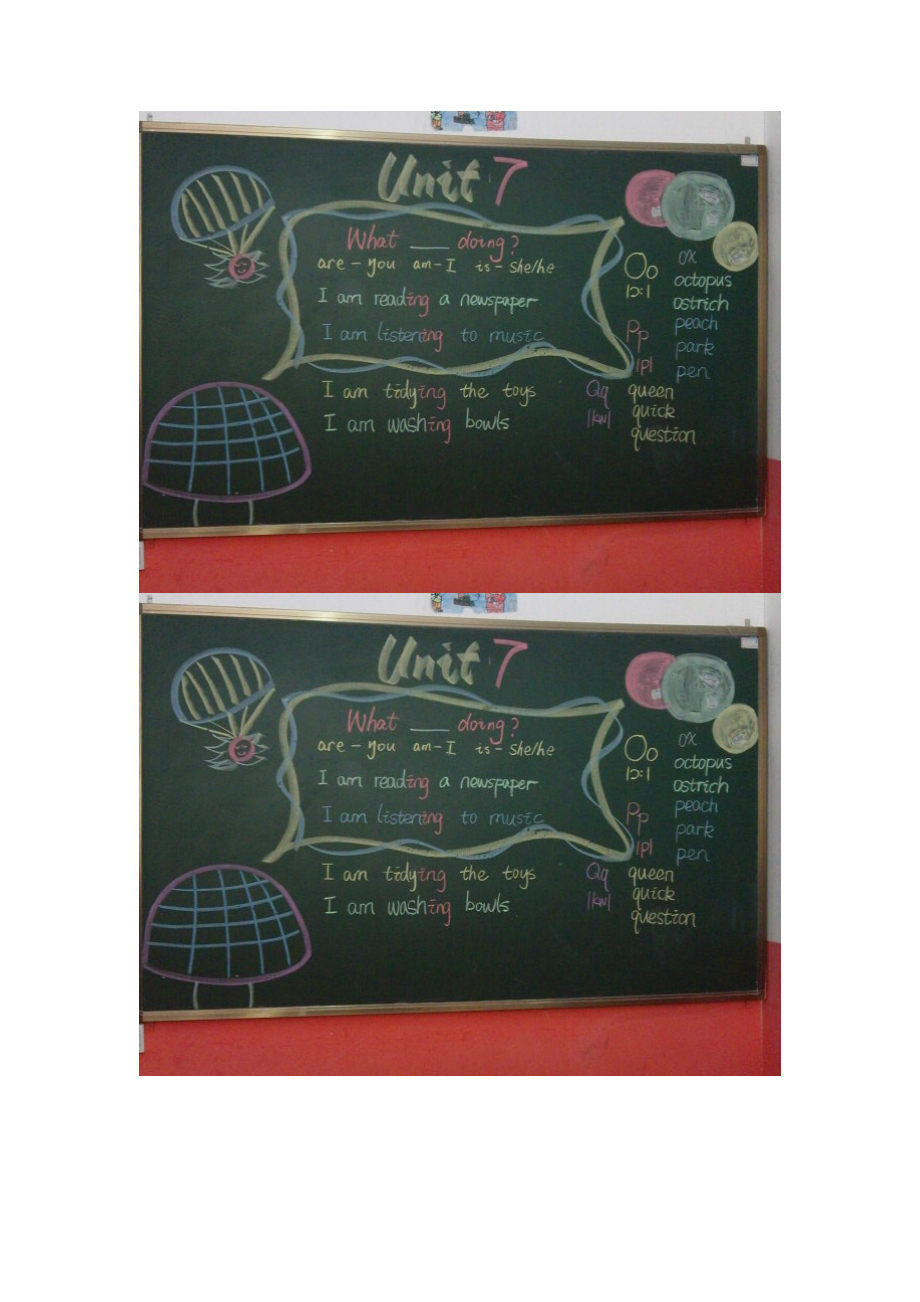 Unit 7
What ___ doing?
are - you am - I is - she/he
I am reading a newspaper
I am listening to music
I am tidying the toys
I am washing bowls
Oo ox
|ɔ:| octopus
ostrich
Pp peach
park
|p| pen
Qq queen
|kw| quick
question
Unit 7
What ___ doing?
are - you am - I is - she/he
I am reading a newspaper
I am listening to music
I am tidying the toys
I am washing bowls
Oo ox
|ɔ:| octopus
ostrich
Pp peach
park
|p| pen
Qq queen
|kw| quick
question